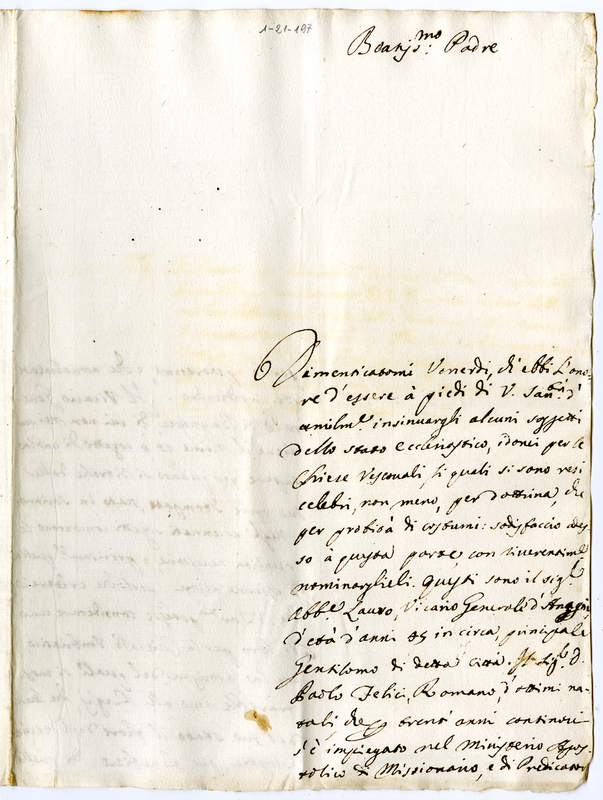 1-21-197
Beatiss:mo Padre
Dimenticatomi Venerdì, ch'ebbi l'ono-
re d'essere à piedi di V. San.tà d'
umilm.e insinuargli alcuni soggetti
dello stato Ecclesiastico, idonei per le
Chiese Vescovali, li quali si sono resi
celebri, non meno, per dottrina, che
per probità di costumi: sodisfaccio ades-
so à questa parte, con riverentim.e
nominarglieli. Questi sono il sig.r
Abb.e Lauro, Vicario Generale d'Anagni
d'età d'anni 45 in circa, principale
Gentilomo di detta Città. Il Sig.r D.
Paolo Felici, Romano, d'ottimi na-
tali, che trent'anni continovi
s'è impiegato nel Ministerio Apos-
tolico di Missionario, e di Predicator